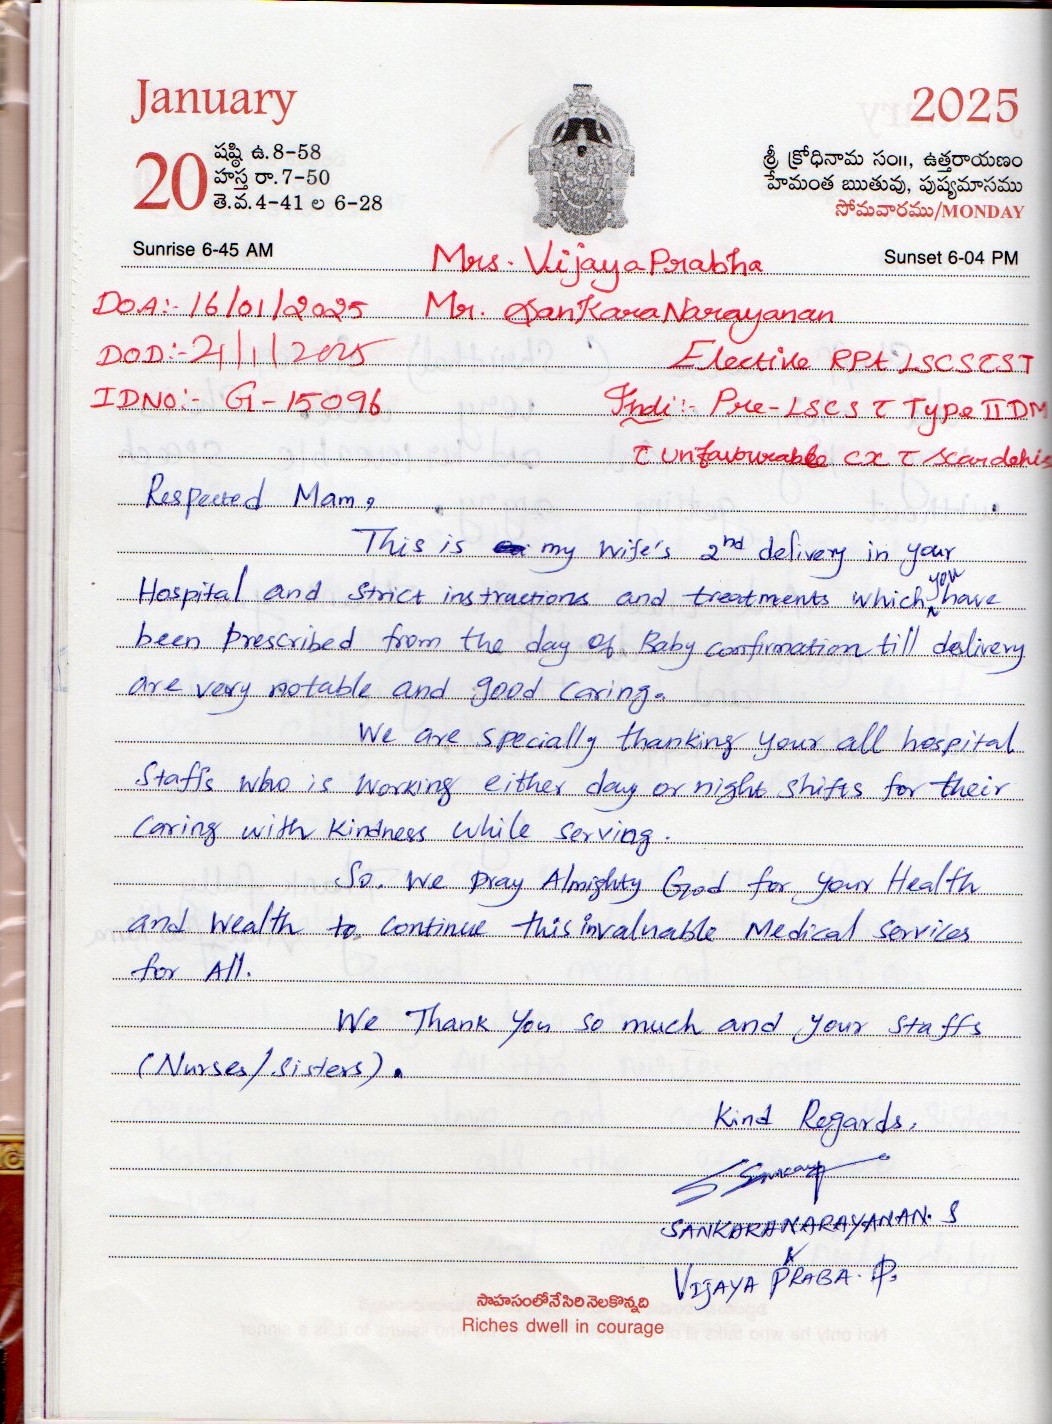 January
2025
20
షష్ఠి ఉ. 8-58
హస్త రా. 7-50
తె.వ. 4-41 ల 6-28
శ్రీ క్రోధినామ సం॥, ఉత్తరాయణం
హేమంత ఋతువు, పుష్యమాసము
సోమవారము/MONDAY
Sunrise 6-45 AM
Sunset 6-04 PM
Mrs. Vijaya Prabha
DOA:- 16/01/2025 Mr. SanKara Narayanan
DOD:- 21/1/2025 Elective RPt LSCS C ST
IDNO:- G-15096 Indi:- Pre-LSCS C Type II DM
C unfavourable CX C Scar dehis
Respected Mam,
This is my wife's 2nd delivery in your
Hospital and strict instructions and treatments which you have
been prescribed from the day of Baby confirmation till delivery
are very notable and good caring.
We are specially thanking your all hospital
staffs who is working either day or night shifts for their
caring with kindness while serving.
So. We pray Almighty God for your Health
and Wealth to continue this invaluable Medical services
for All.
We Thank You so much and your staffs
(Nurses/Sisters).
Kind Regards,
SANKARANARAYANAN. S
VIJAYA PRABA. P.
సాహసంలోనే సిరి నెలకొన్నది
Riches dwell in courage